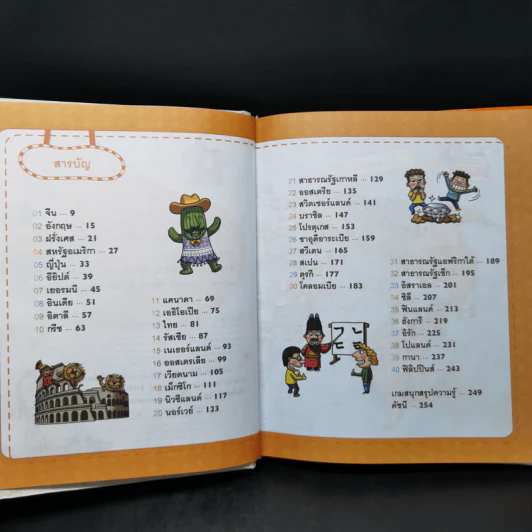 สารบัญ
01 จีน ... 9
02 อังกฤษ ... 15
03 ฝรั่งเศส ... 21
04 สหรัฐอเมริกา ... 27
05 ญี่ปุ่น ... 33
06 อียิปต์ ... 39
07 เยอรมนี ... 45
08 อินเดีย ... 51
09 อิตาลี ... 57
10 กรีซ ... 63
11 แคนาดา ... 69
12 เอธิโอเปีย ... 75
13 ไทย ... 81
14 รัสเซีย ... 87
15 เนเธอร์แลนด์ ... 93
16 ออสเตรเลีย ... 99
17 เวียดนาม ... 105
18 เม็กซิโก ... 111
19 นิวซีแลนด์ ... 117
20 นอร์เวย์ ... 123
21 สาธารณรัฐเกาหลี ... 129
22 ออสเตรีย ... 135
23 สวิตเซอร์แลนด์ ... 141
24 บราซิล ... 147
25 โปรตุเกส ... 153
26 ซาอุดีอาระเบีย ... 159
27 สวีเดน ... 165
28 สเปน ... 171
29 ตุรกี ... 177
30 โคลอมเบีย ... 183
31 สาธารณรัฐแอฟริกาใต้ ... 189
32 สาธารณรัฐเช็ก ... 195
33 อิสราเอล ... 201
34 ชิลี ... 207
35 ฟินแลนด์ ... 213
36 ฮังการี ... 219
37 อิรัก ... 225
38 โปแลนด์ ... 231
39 กานา ... 237
40 ฟิลิปปินส์ ... 243
เกมสนุกสรุปความรู้ ... 249
ดัชนี ... 254